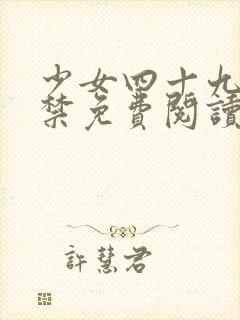 少女四十九
禁免費閱讀
許慧君